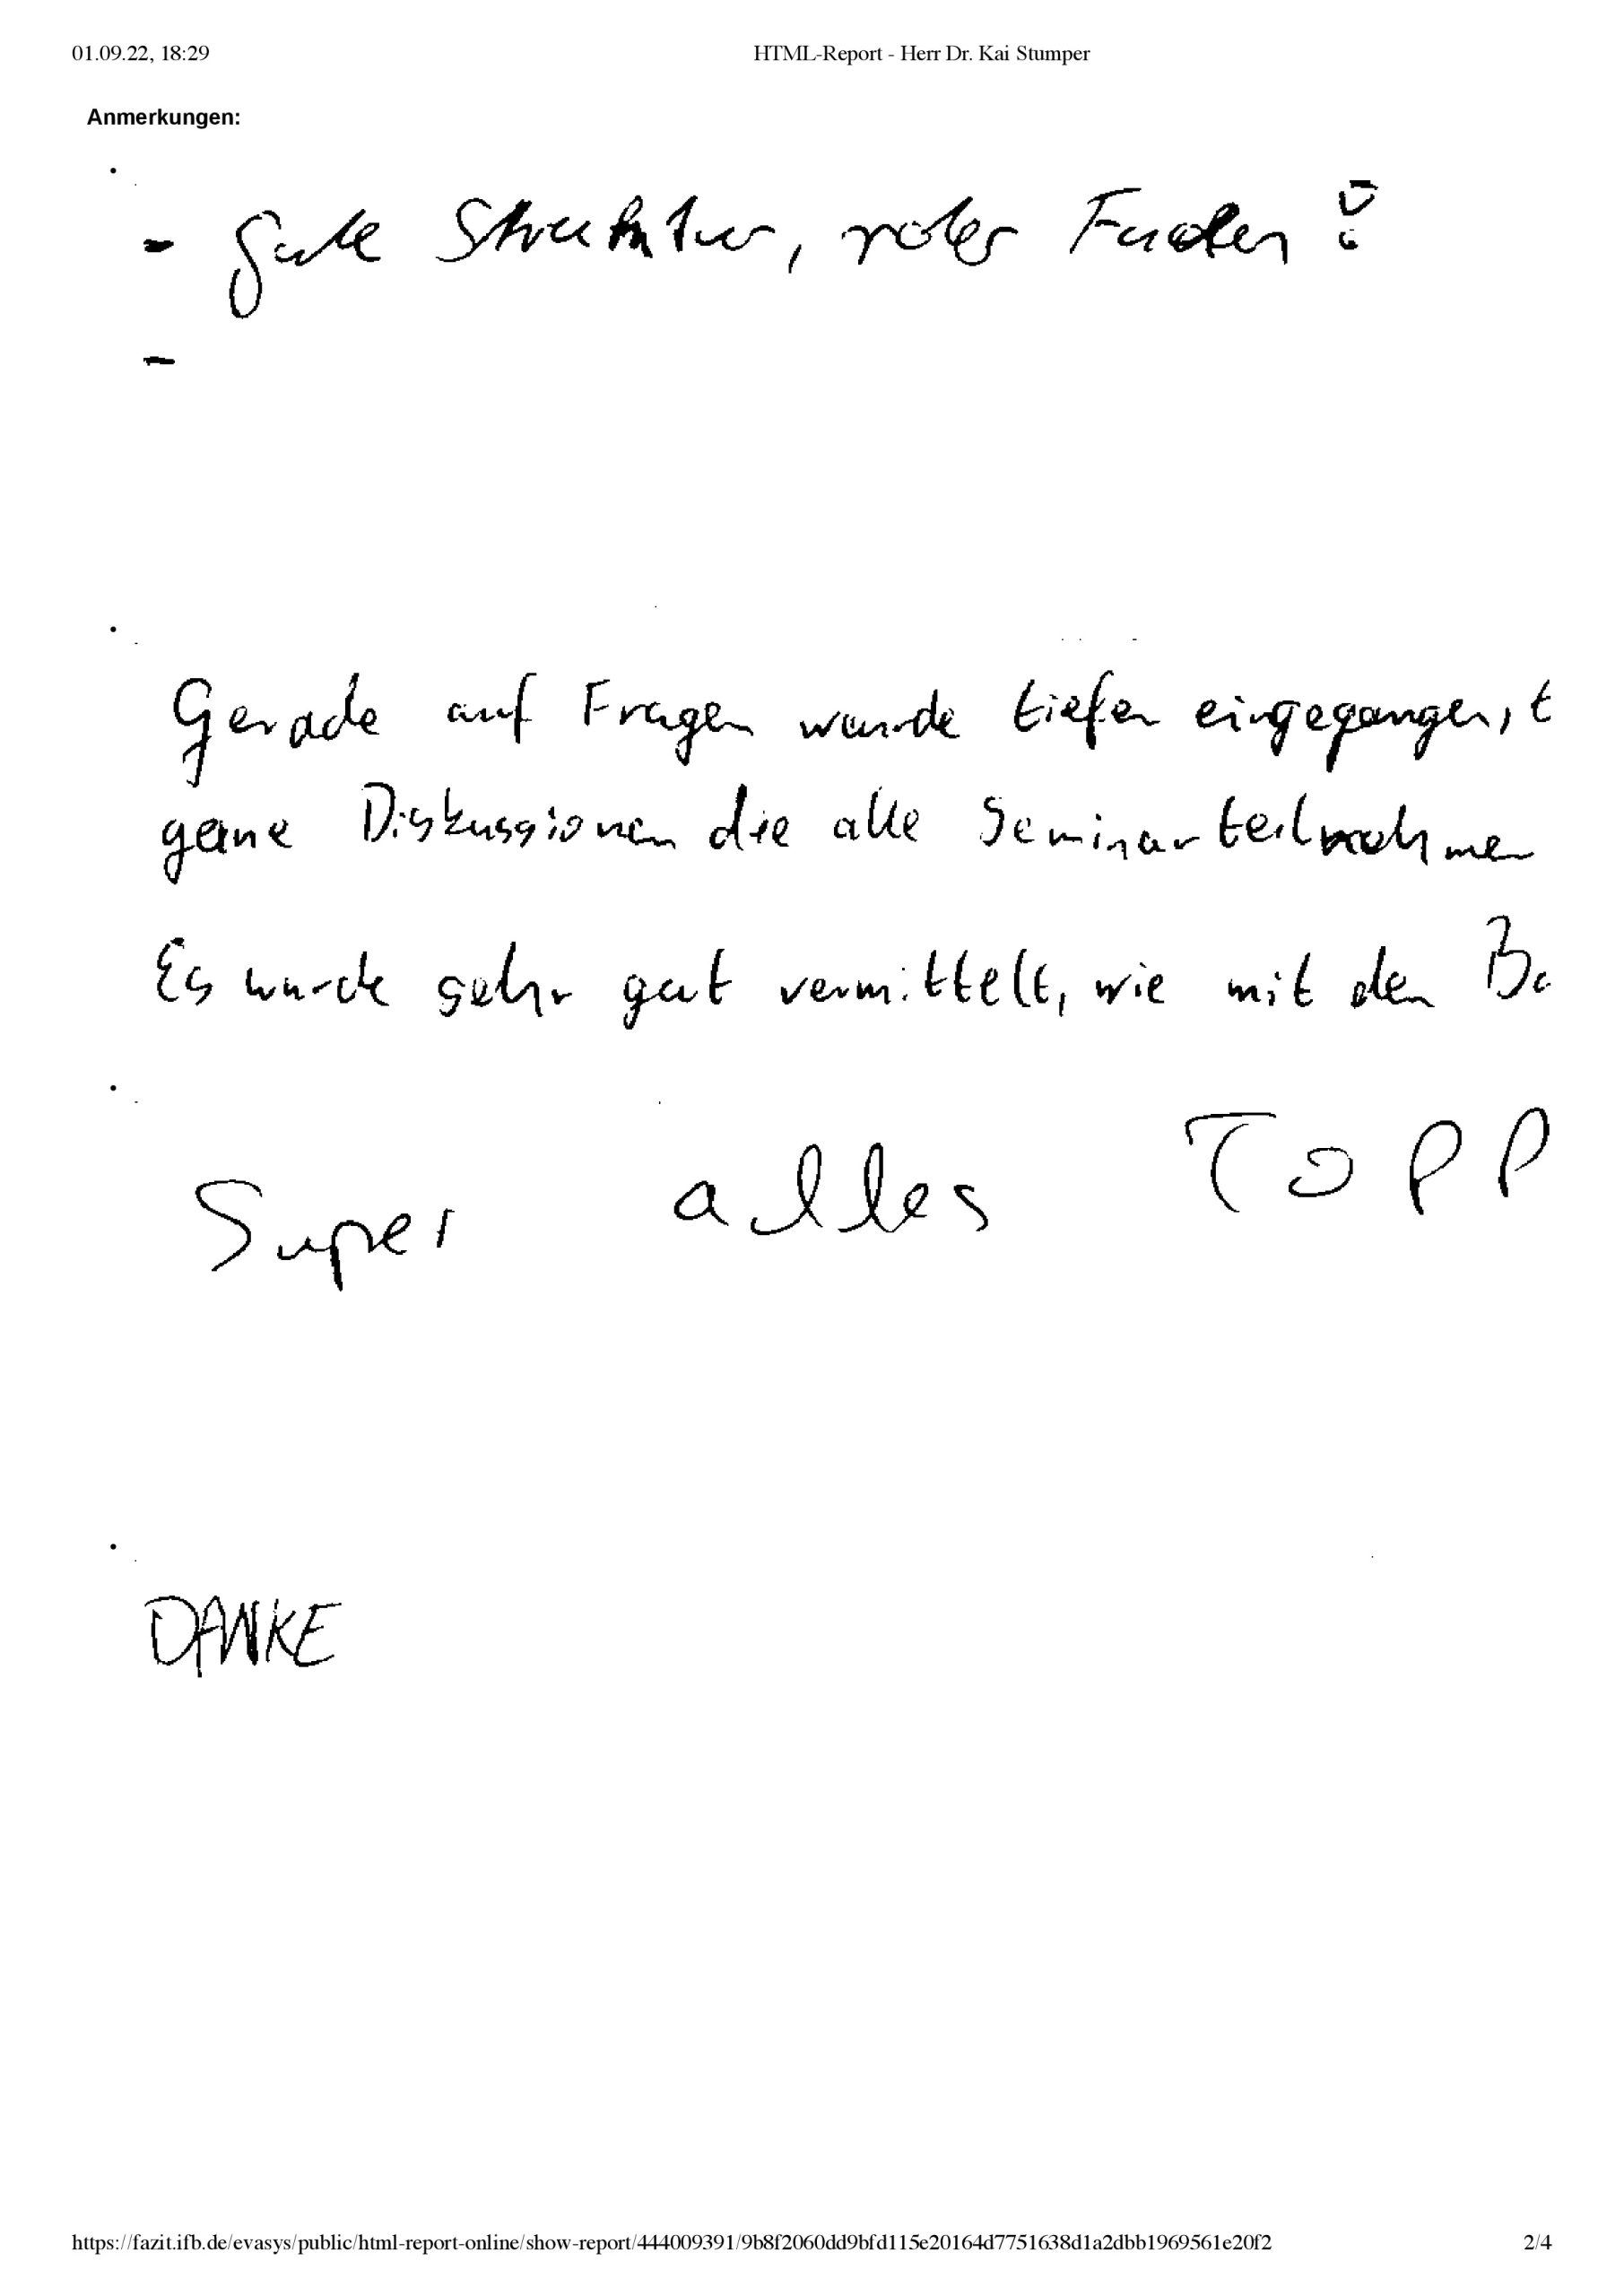 01.09.22, 18:29
HTML-Report - Herr Dr. Kai Stumper
Anmerkungen:
- gute Struktur, roter Faden !
-
Gerade auf Fragen wurde tiefer eingegangen, t
gerne Diskussionen die alle Seminarteilnehmer
Es wurde sehr gut vermittelt, wie mit den Ba
Super alles TOPP
DANKE
https://fazit.ifb.de/evasys/public/html-report-online/show-report/444009391/9b8f2060dd9bfd115e20164d7751638d1a2dbb1969561e20f2
2/4